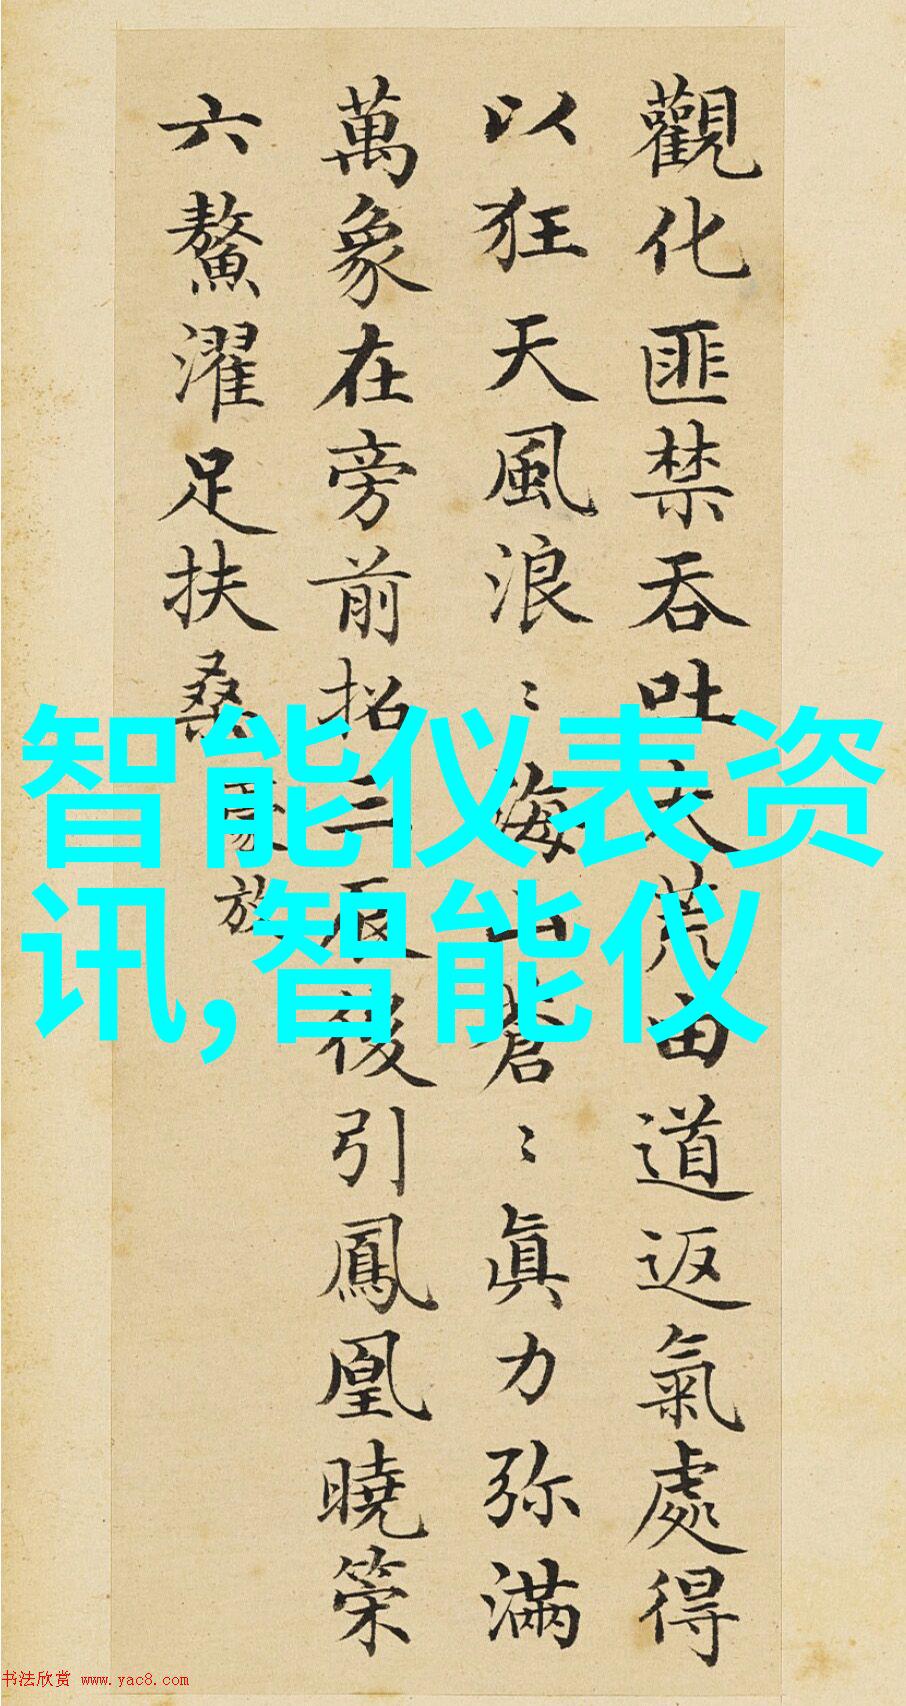 觀化匪禁吞吐大荒由道返氣處得
以狂天風浪〻海山蒼〻真力弥滿
萬象在旁前招三辰後引鳳凰曉策
六鰲濯足扶桑
豪放
智能仪表资
讯,智能仪
书法欣赏 www.yac8.com